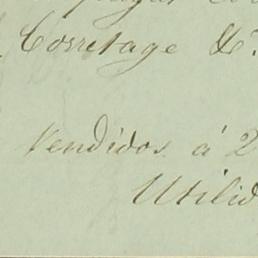 Corretage &c.
Vendidos á 2
Utilid